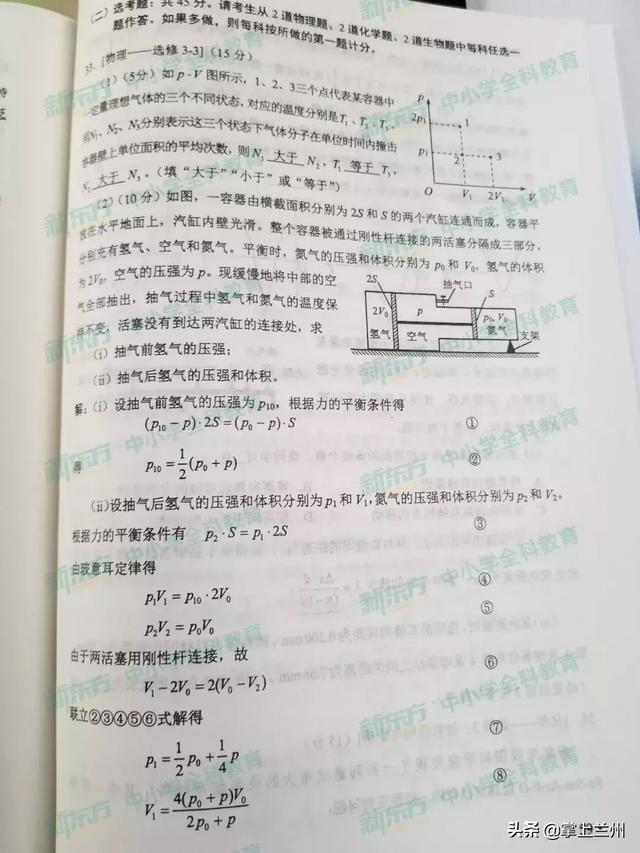 (二) 选考题：共 45 分。请考生从 2 道物理题、2 道化学题、2 道生物题中每科任选一
题作答。如果多做，则每科按所做的第一题计分。
33. [物理——选修 3-3] (15 分)
(1) (5分) 如 p-V 图所示，1、2、3三个点代表某容器中
一定量理想气体的三个不同状态，对应的温度分别是T₁、T₂、T₃。
用N₁、N₂、N₃分别表示这三个状态下气体分子在单位时间内撞击
容器壁上单位面积的平均次数，则 N₁ 大于 N₂，T₁ 等于 T₃，
N₂ 大于 N₃。(填“大于”“小于”或“等于”)
p
2p₁
p₁
1
2
3
O
V₁
2V₁
V
(2) (10 分) 如图，一容器由横截面积分别为 2S 和 S 的两个汽缸连通而成，容器平
放在水平地面上，汽缸内壁光滑。整个容器被通过刚性杆连接的两活塞分隔成三部分，
分别充有氢气、空气和氮气。平衡时，氮气的压强和体积分别为 p₀ 和 V₀，氢气的体积
为 2V₀，空气的压强为 p。现缓慢地将中部的空
气全部抽出，抽气过程中氢气和氮气的温度保
持不变，活塞没有到达两汽缸的连接处，求
(i) 抽气前氢气的压强；
(ii) 抽气后氢气的压强和体积。
2S
抽气口
S
2V₀
p
p₀, V₀
氢气
空气
氮气
支架
解：(i) 设抽气前氢气的压强为 p₁₀，根据力的平衡条件得
(p₁₀ − p)·2S = (p₀ − p)·S ①
得 p₁₀ = 1/2(p₀ + p) ②
(ii)设抽气后氢气的压强和体积分别为 p₁ 和 V₁，氮气的压强和体积分别为 p₂ 和 V₂。
根据力的平衡条件有 p₂·S = p₁·2S ③
由玻意耳定律得
p₁V₁ = p₁₀·2V₀ ④
p₂V₂ = p₀V₀ ⑤
由于两活塞用刚性杆连接，故
V₁ − 2V₀ = 2(V₀ − V₂) ⑥
联立②③④⑤⑥式解得
p₁ = 1/2 p₀ + 1/4 p ⑦
V₁ = 4(p₀ + p)V₀ / 2p₀ + p ⑧
新东方 中小学全科教育
头条 @掌上兰州